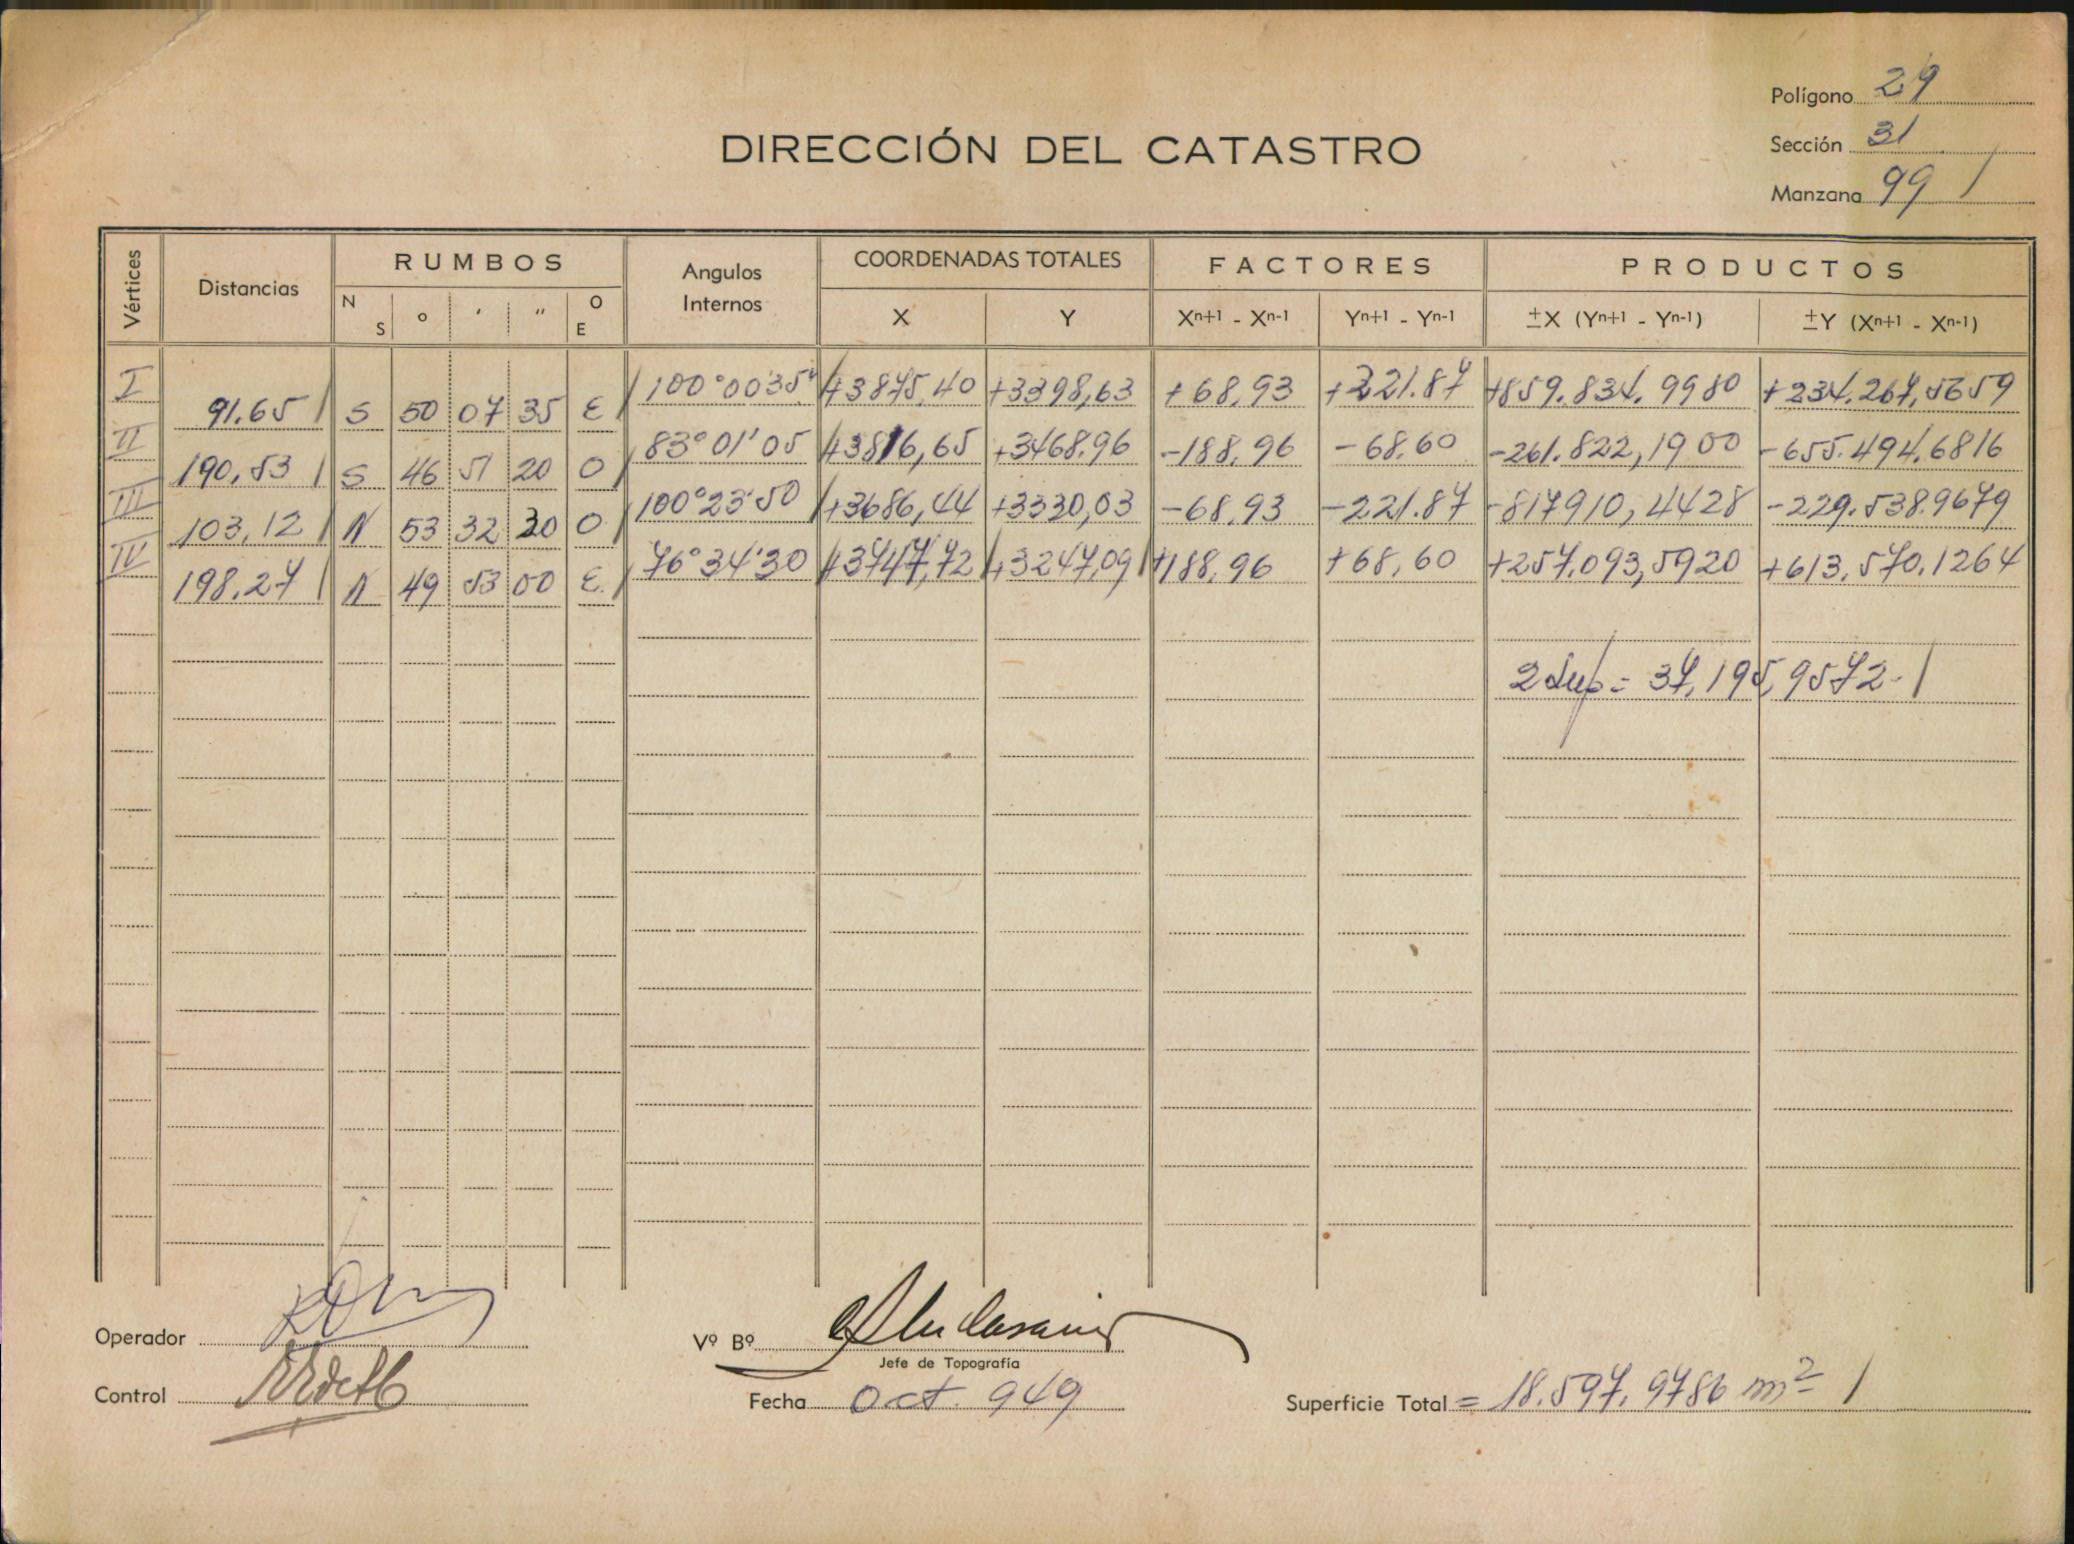 Polígono 29
DIRECCIÓN DEL CATASTRO
Sección 31
Manzana 99 /
Vértices Distancias RUMBOS Angulos Internos COORDENADAS TOTALES FACTORES PRODUCTOS
N S o ' " O E X Y Xn+1 - Xn-1 Yn+1 - Yn-1 ±X (Yn+1 - Yn-1) ±Y (Xn+1 - Xn-1)
I 91.65 / S 50 07 35 E / 100°00'35" +3875,40 +3398,63 +68,93 +221.87 +859.834,9980 +234.267,5659
II 190,53 / S 46 51 20 O / 83°01'05 +3816,65 +3468,96 -188,96 -68.60 -261.822,1900 -655.494,6816
III 103,12 / N 53 32 30 O / 100°23'50 +3686,44 +3330,03 -68,93 -221.87 -817910,4428 -229.538.9679
IV 198,27 / N 49 53 00 E / 76°34'30 +3747,72 +3247,09 +188,96 +68,60 +257.093,5920 +613.570.1264
2 Sup = 37,195,9572 - /
Operador
Vº Bº
Jefe de Topografía
Control
Fecha Oct. 949
Superficie Total = 18.597,9786 m² /